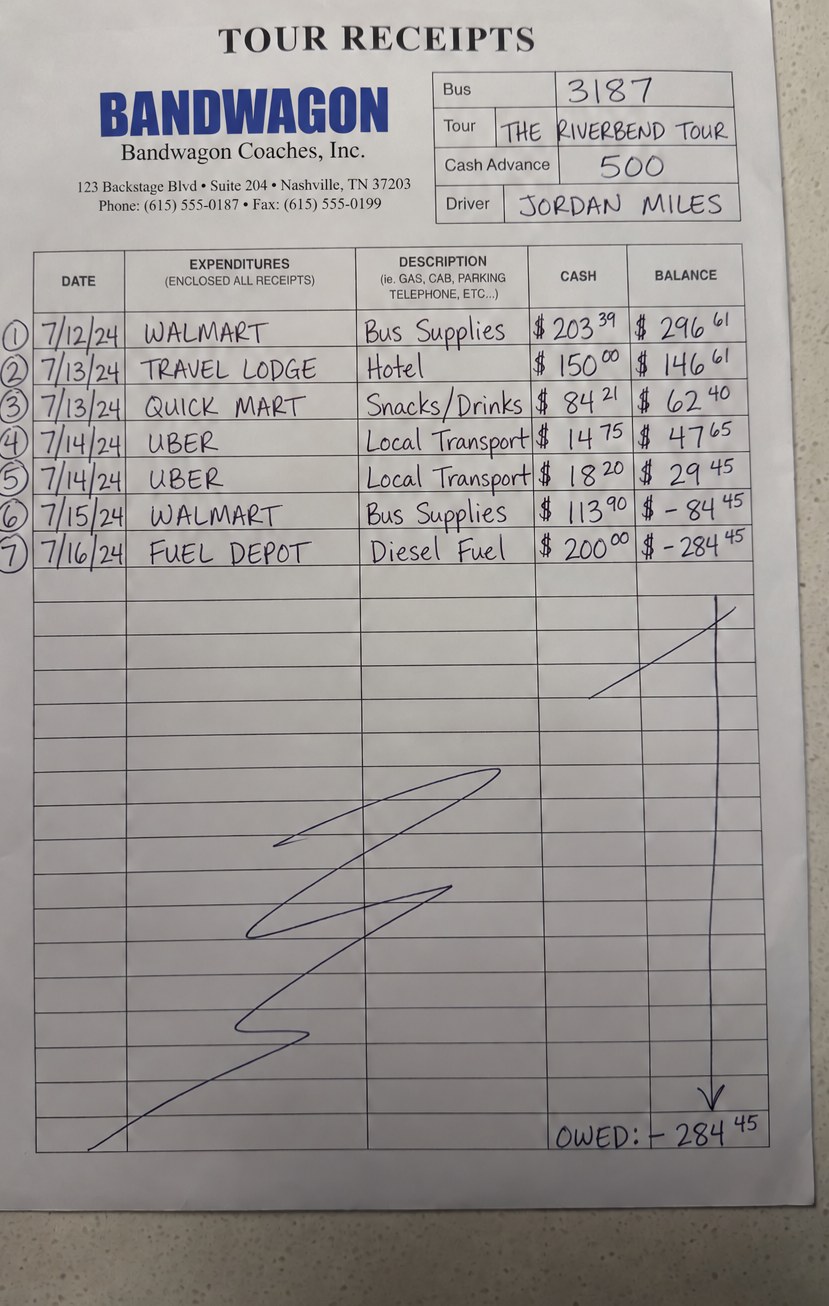 TOUR RECEIPTS
BANDWAGON
Bandwagon Coaches, Inc.
123 Backstage Blvd • Suite 204 • Nashville, TN 37203
Phone: (615) 555-0187 • Fax: (615) 555-0199
Bus 3187
Tour THE RIVERBEND TOUR
Cash Advance 500
Driver JORDAN MILES
DATE EXPENDITURES (ENCLOSED ALL RECEIPTS) DESCRIPTION (ie. GAS, CAB, PARKING TELEPHONE, ETC...) CASH BALANCE
1 7/12/24 WALMART Bus Supplies $ 203 39 $ 296 61
2 7/13/24 TRAVEL LODGE Hotel $ 150 00 $ 146 61
3 7/13/24 QUICK MART Snacks/Drinks $ 84 21 $ 62 40
4 7/14/24 UBER Local Transport $ 14 75 $ 47 65
5 7/14/24 UBER Local Transport $ 18 20 $ 29 45
6 7/15/24 WALMART Bus Supplies $ 113 90 $ - 84 45
7 7/16/24 FUEL DEPOT Diesel Fuel $ 200 00 $ - 284 45
OWED: - 284 45